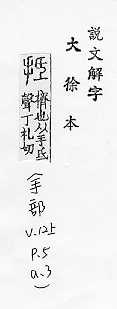 說文解字
大徐本
抵 擠也从手氐
聲丁礼切
(手部
V.12上
P.5
a.3)